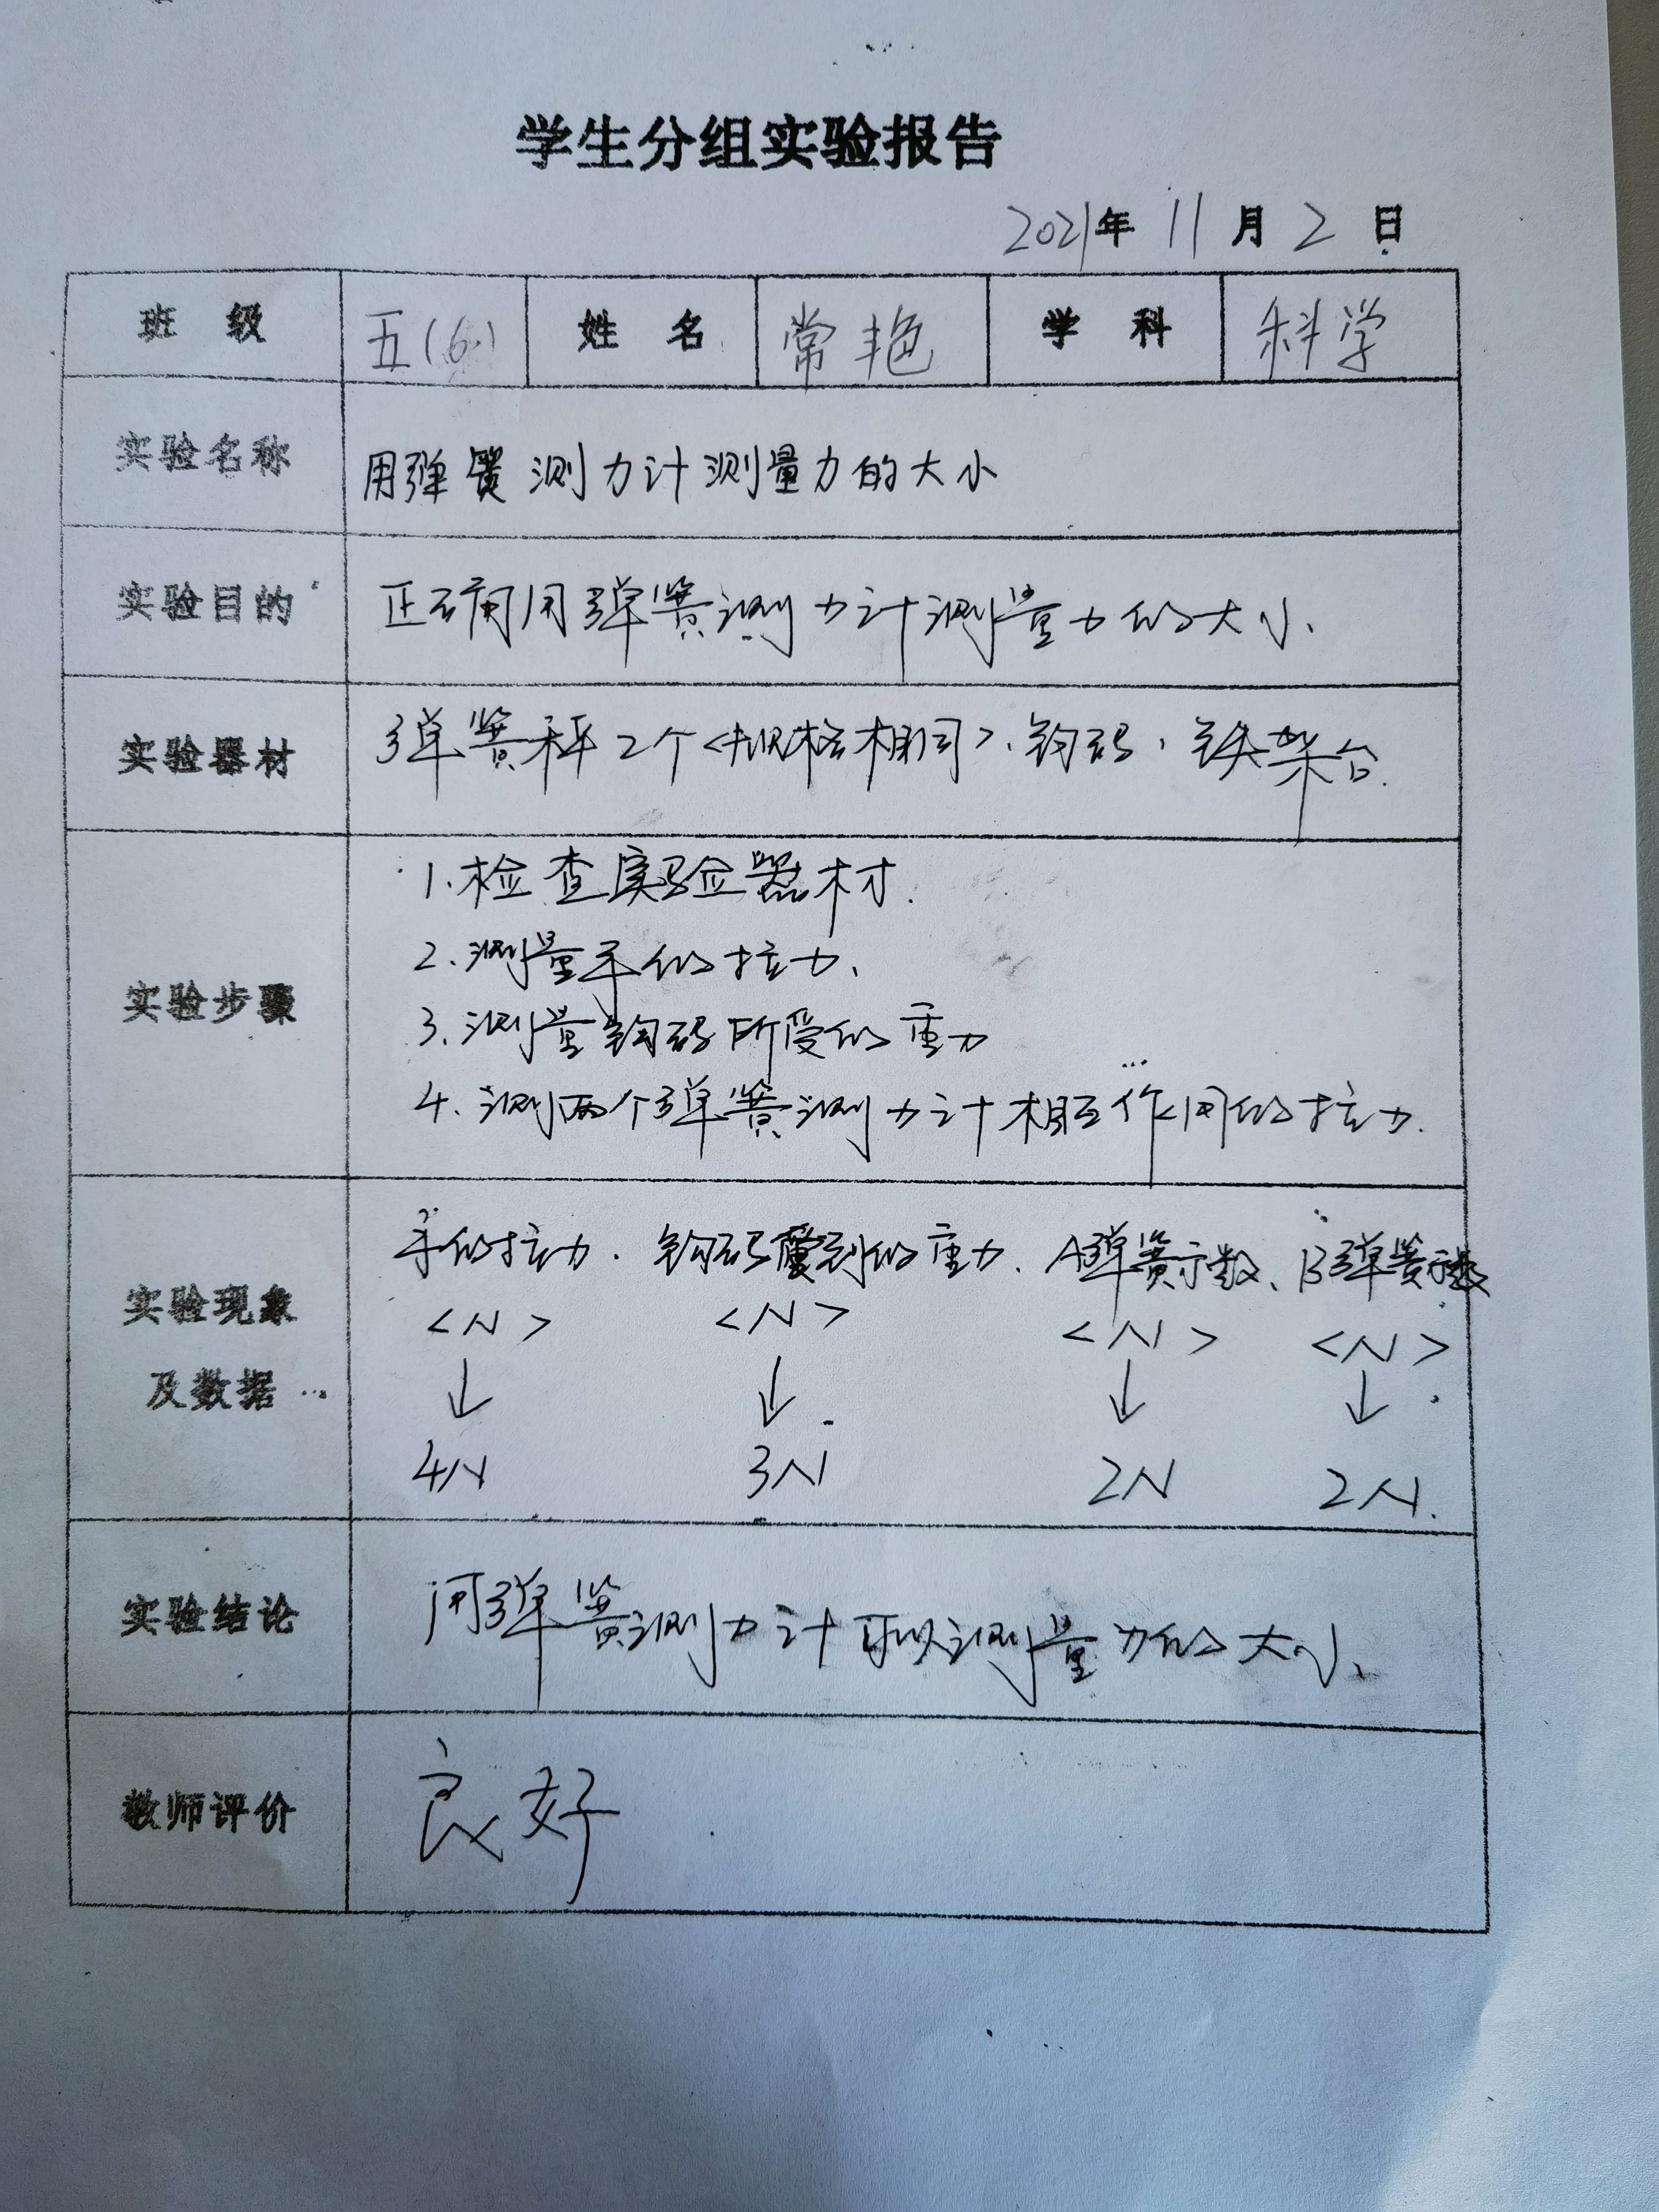 学生分组实验报告
2021年 11 月 2 日
班 级 五(6) 姓 名 常艳 学 科 科学
实验名称 用弹簧测力计测量力的大小
实验目的 正确用弹簧测力计测量力的大小、
实验器材 弹簧秤2个<规格相同>、钩码、铁架台.
实验步骤
1.检查实验器材.
2.测量手的拉力、
3.测量钩码所受的重力
4.测两个弹簧测力计相互作用的拉力.
实验现象
及数据
手的拉力、钩码受到的重力、A弹簧示数、B弹簧示数
<N> <N> <N> <N>
↓ ↓ ↓ ↓
4N 3N 2N 2N.
实验结论 用弹簧测力计可以测量力的大小、
教师评价 良好